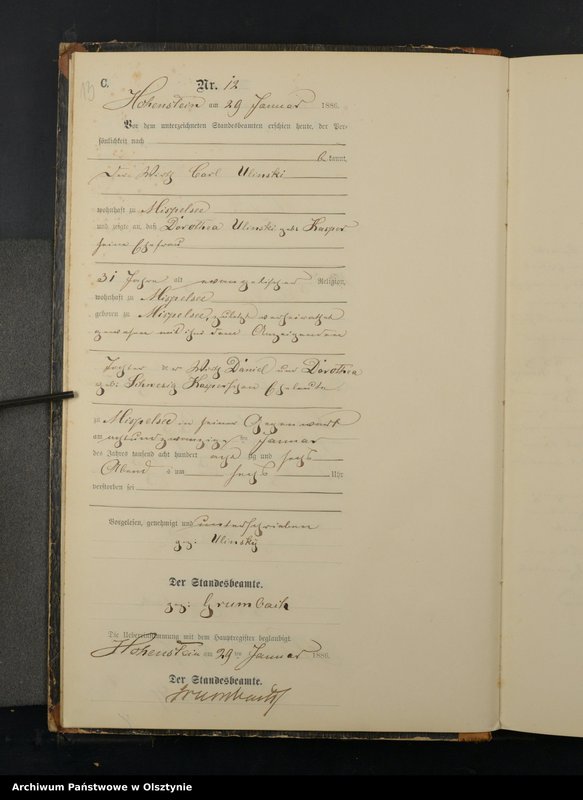 C.
13
Nr. 12
Hohenstein am 29 Januar 1886.
Vor dem unterzeichneten Standesbeamten erschien heute, der Per-
sönlichkeit nach
be kannt,
Der Wirth Carl Ulinski
wohnhaft zu Mispelsee
und zeigte an, daß Dorothea Ulinski geb. Kasper
seine Ehefrau
31 Jahre alt evangelischer Religion,
wohnhaft zu Mispelsee
geboren zu Mispelsee, zuletzt verheirathet
gewesen mit ihm dem Anzeigenden
Tochter der Wirth Daniel und Dorothea
geb. Kasperschen Eheleute
zu Mispelsee in seiner Gegenwart
am achtundzwanzigsten Januar
des Jahres tausend acht hundert acht zig und sechs
Abends um sechs Uhr
verstorben sei
Vorgelesen, genehmigt und unterschrieben
gez. Ulinsky
Der Standesbeamte.
gez. Grumbach
Die Uebereinstimmung mit dem Hauptregister beglaubigt
Hohenstein am 29 ten Januar 1886.
Der Standesbeamte.
Grumbach
Archiwum Państwowe w Olsztynie